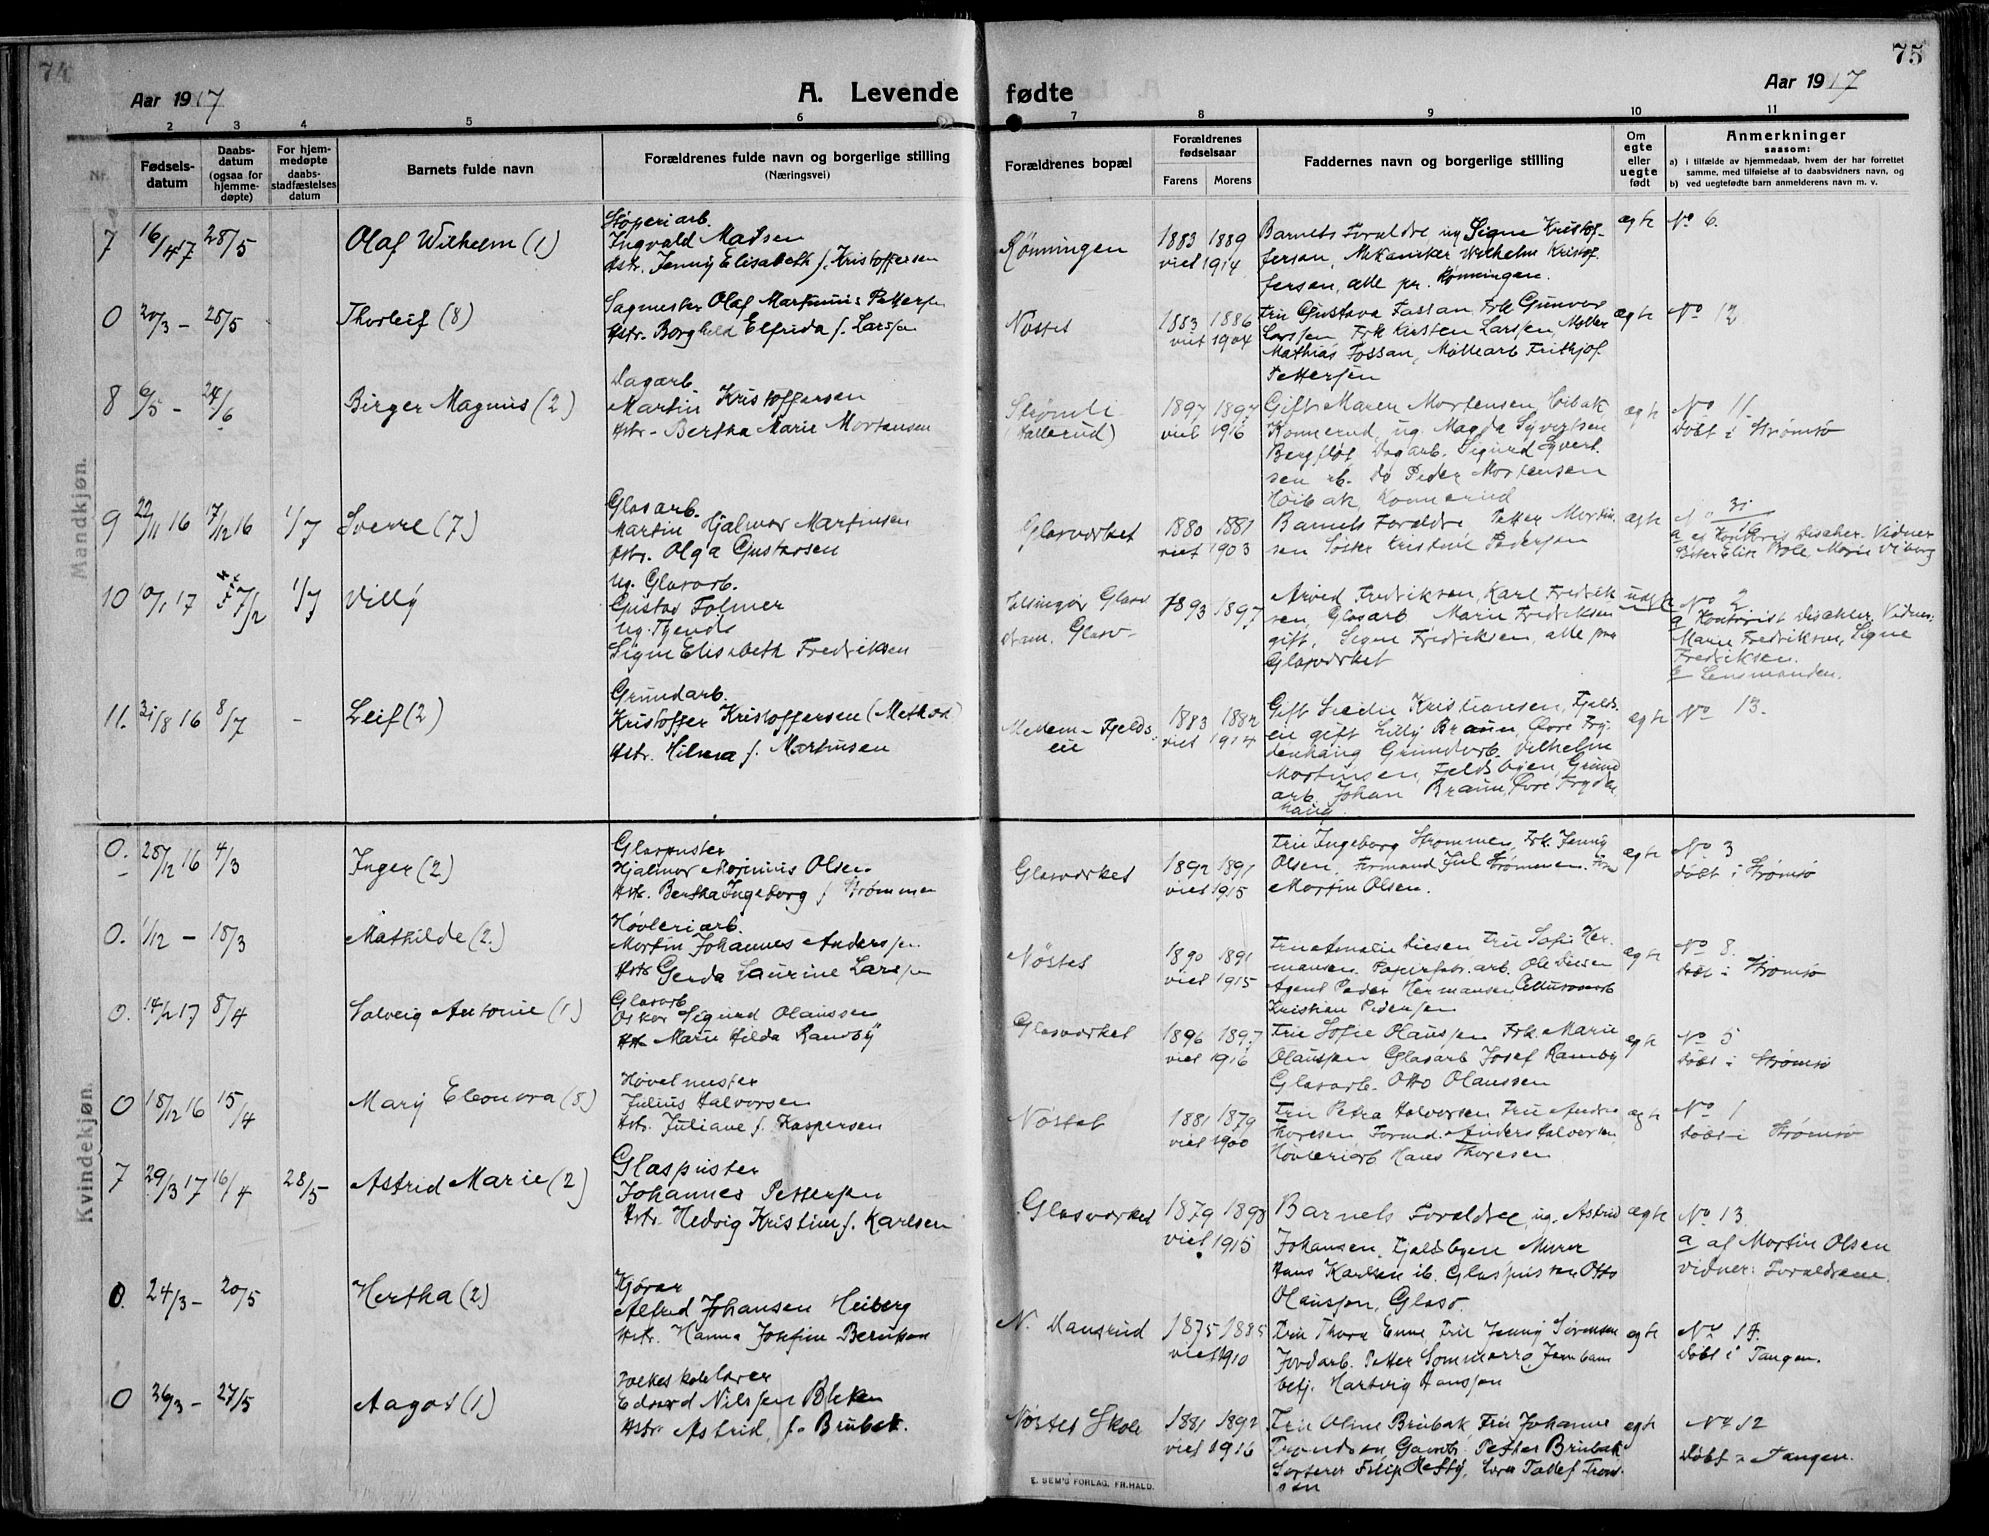 74
75
Aar 1917
A. Levende fødte
Aar 1917
1 2 3 4 5 6 7 8 9 10 11
Nr.
Fødsels-
datum
Daabs-
datum
(ogsaa for
hjemme-
døpte)
For hjem-
medøpte
daabs-
stadfæstelses
datum
Barnets fulde navn
Forældrenes fulde navn og borgerlige stilling
(Næringsvei)
Forældrenes bopæl
Forældrenes
fødselsaar
Farens Morens
Faddernes navn og borgerlige stilling
Om
egte
eller
uegte
født
Anmerkninger
saasom:
a) i tilfælde av hjemmedaab, hvem der har forrettet
samme, med tilføielse af to daabsvidners navn, og
b) ved uegtefødte barn anmelderens navn m. v.
Mandkjøn.
7 16/4 17 28/5 Olaf Wilhelm (1)
Støperiarb.
Ingvald Madsen
Hstr. Jenny Elisabeth f. Kristoffersen
Rønningen
1883 1889
viet 1914
Barnets Forældre ug Signe Kristof-
fersen, Mekaniker Wilhelm Kristof-
fersen, alle pr. Rønningen.
ægte
No 6.
0 20/3 - 28/5 Thorleif (8)
Sagmester Olaf Martinius Pettersen
Hstr. Borghild Elfrida f. Larssen
Nøstet
1883 1886
viet 1904
Fru Gustava Fossan, Frk Gunvor
Larssen, Frk Kirsten Larssen, Møller
Mathias Fossan, Møllearb Frithjof
Pettersen
ægte
No 12
8 6/5 - 24/6 Birger Magnus (2)
Dagarb.
Martin Kristoffersen
Hstr. Bertha Marie Mortensen
Strømli
(Hallerud)
1897 1897
viet 1916
Gift Maren Mortensen Høibak
Konnerud, ug. Magda Syvertsen
Bergfløt, Dagarb. Sigurd Syvert-
sen ib. Do Peder Mortensen
Høibak, Konnerud
ægte
No 11
Døbt i Strømsø
9 22/11 16 17/12 16 1/7 Sverre (7)
Glasarb.
Martin Hjalmar Martinsen
Hstr. Olga Gustavsen
Glasværket
1880 1881
viet 1903
Barnets Forældre Petter Martin-
sen Søster Kristine Pedersen
ægte
No 31/16
10 10/1 17 7/2 1/7 Villy
Ug. Glasarb.
Gustav Folmer
Ug. Tjende
Signe Elisabeth Fredriksen
Helsingør Glasv
1893 1897
Arved Fredriksen, Karl Fredrik-
sen, Glasarb Marie Fredriksen
gift, Signe Fredriksen, alle paa
Glasværket
No 2
a Kontorist Discher. Vidner:
Marie Fredriksen, Signe
Fredriksen.
b Lensmanden.
11. 31/8 16 8/7 - Leif (2)
Grundarb.
Kristoffer Kristoffersen (Methad)
Hstr. Hilma f. Martinsen
Mellem-Fjelds-
eie
1883 1882
viet 1914
Gift Kristiansen, Fjelds-
eie gift Lilly Braun, Øvre Fry-
denhaug Grundarb. Vilhelm
Martinsen, Fjeldsbyen, Grund-
arb. Johan Braun, Øvre Fryden-
haug
ægte
No 13.
Kvindekjøn.
0. 28/12 16 4/3 Inger (2)
Glaspuster
Hjalmar Marinius Olsen
Hstr. Bertha Ingeborg f. Strømmen
Glasværket
1892 1891
viet 1915
Fru Ingeborg Strømmen, Frk. Jenny
Olsen, Formand Jul Strømmen
Martin Olsen.
ægte
No 3
døbt i Strømsø
0. 1/12 - 18/3 Mathilde (2.)
Høvleriarb.
Martin Johannes Anderssen
Hstr Gerda Laurine Larssen
Nøstet
1890 1891
viet 1915
Fru Amalie Diesen, Fru Sofie Her-
mansen, Papirfabr.arb. Ole Diesen
Agent Peder Hermansen Cellulosearb
Kristian Pedersen
ægte
No 8.
Døbt i Strømsø
0. 14/2 17 8/4 Solveig Antonie (1)
Glasarb
Oskar Sigurd Olaussen
Hstr Marie Hilda Ramby
Glasværket
1896 1897
viet 1916
Fru Sofie Olaussen Frk. Marie
Olaussen Glasarb Josef Ramby
Glasarb. Otto Olaussen
ægte
No 5
Døbt i Strømsø
0 18/12 16 15/4 Mary Eleonora (8)
Høvelmester
Julius Halvorsen
Hstr. Juliane f. Kaspersen
Nøstet
1881 1879
viet 1900
Fru Petra Halvorsen Fru Andrea
Thoresen Formd. Anders Halvorsen
Høvleriarb Hans Thoresen
ægte
No 1
Døbt i Strømsø
7 29/3 17 16/4 28/5 Astrid Marie (2)
Glaspuster
Johannes Pettersen
Hstr. Hedvig Kristine f. Karlsen
Glasværket
1879 1898
viet 1915
Barnets Forældre, ug. Astrid
Johansen, Fjeldsbyen Murer
Hans Karlsen ib. Glaspuster Otto
Olaussen, Glasv.
ægte
No 13.
a af Martin Olsen
vidner: Forældrene.
0. 24/3 - 20/5 Hertha (2)
Kjørar
Alfred Johansen Heiberg
Hstr. Hanna Josefine Berntsen
N. Dansrud
1875 1885
viet 1910
Fru Thora Enne, Fru Jenny Sørensen
Jordarb. Petter Sommerro, Jernbane
betj. Hartvig Hanssen
ægte
No 14.
Døbt i Tangen.
0 26/3 - 27/5 Aagot (1)
Folkeskolelærer
Edvard Nilssen Bleken
Hstr Astrid, f. Brubak.
Nøstet Skole
1881 1892
viet 1916
Fru Oline Brubak Fru Johanne
Trondsen, Petter Brubak
Sorterer Filip Hefty, Lærer Tallef Trond-
sen
ægte
No 12
Døbt i Tangen.
E. SEM'S FORLAG, FR.HALD.